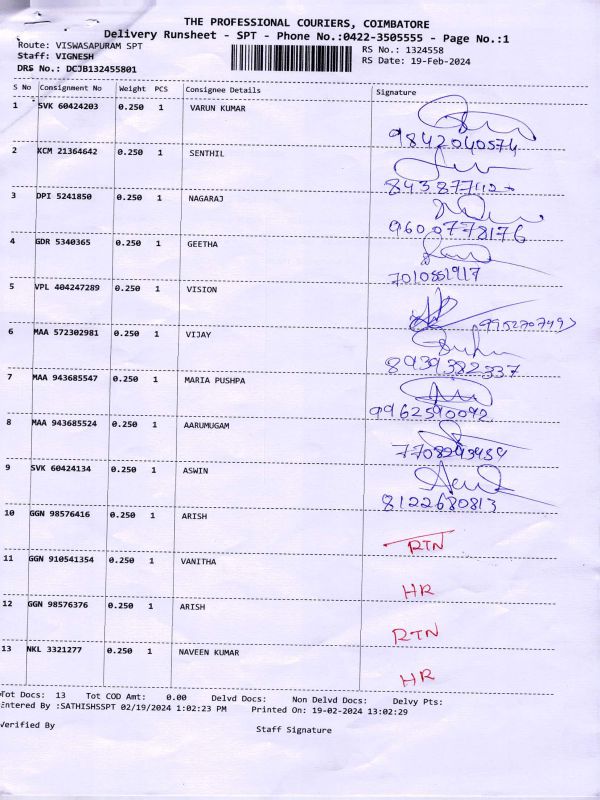 THE PROFESSIONAL COURIERS, COIMBATORE
Delivery Runsheet - SPT - Phone No.:0422-3505555 - Page No.:1
Route: VISWASAPURAM SPT
Staff: VIGNESH
DRS No.: DCJB132455801
RS No.: 1324558
RS Date: 19-Feb-2024
S No Consignment No Weight PCS Consignee Details Signature
1 SVK 60424203 0.250 1 VARUN KUMAR
9842040574
2 KCM 21364642 0.250 1 SENTHIL
3 DPI 5241850 0.250 1 NAGARAJ
9600778176
4 GDR 5340365 0.250 1 GEETHA
7010881917
5 VPL 404247289 0.250 1 VISION
6 MAA 572302981 0.250 1 VIJAY
8939382337
7 MAA 943685547 0.250 1 MARIA PUSHPA
9962590092
8 MAA 943685524 0.250 1 AARUMUGAM
9 SVK 60424134 0.250 1 ASWIN
8122680813
10 GGN 98576416 0.250 1 ARISH
RTN
11 GGN 910541354 0.250 1 VANITHA
HR
12 GGN 98576376 0.250 1 ARISH
RTN
13 NKL 3321277 0.250 1 NAVEEN KUMAR
HR
Tot Docs: 13 Tot COD Amt: 0.00 Delvd Docs: Non Delvd Docs: Delvy Pts:
Entered By :SATHISHSSPT 02/19/2024 1:02:23 PM Printed On: 19-02-2024 13:02:29
Verified By
Staff Signature